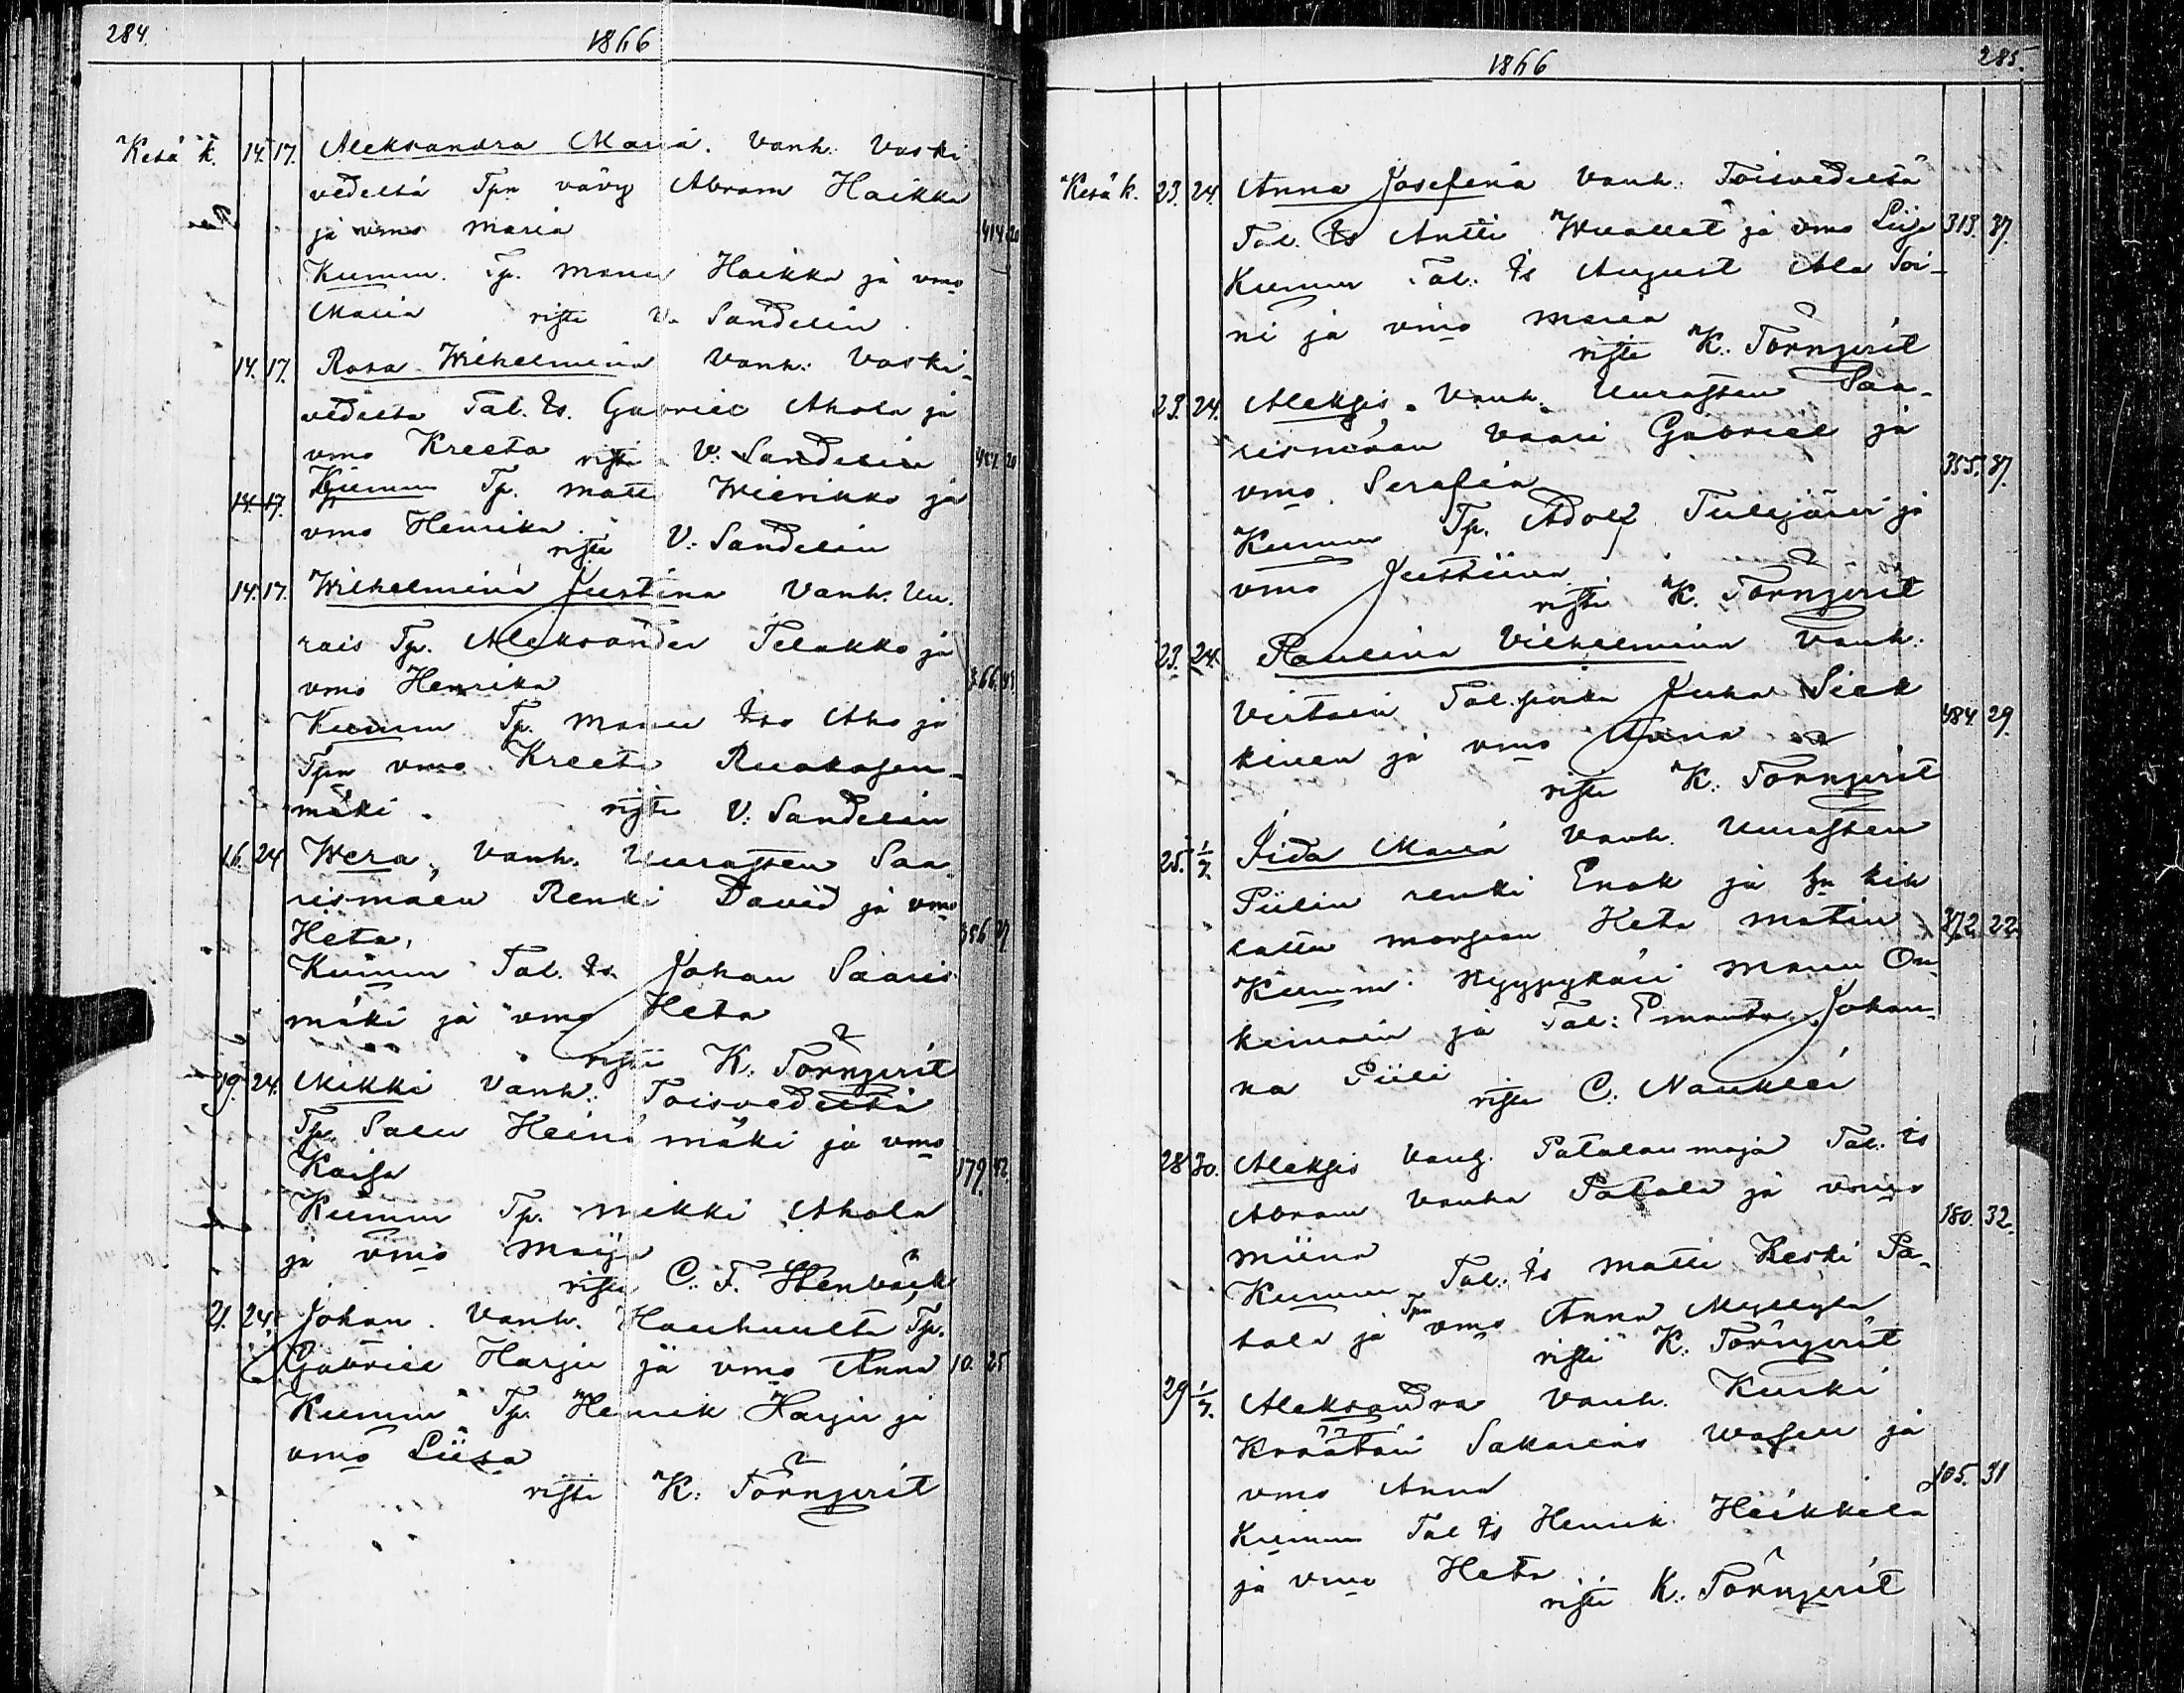 284.
1866
Kesä k. 14. 17. Aleksandra Maria. Vanh. Vaski
vedeltä Tpn vävy Abram Haikka
ja vmo Maria 414 20
Kumm. Tp. Manu Haikka ja vmo
Maria risti V. Sandelin
14. 17. Rosa Wilhelmina Vanh. Vaski-
vedeltä Tal. Is. Gabriel Ahola ja
vmo Kreeta risti V. Sandelin 20
14. 17. Kumm Tp. Matti Wierikko ja
vmo Henrika
risti V. Sandelin
14. 17. Wilhelmina Justina Vanh. Uu-
rais Tp. Aleksander Telakko ja
vmo Henrika 366.
Kumm Tp. Manu Iso Aho ja
Tpn vmo Kreeta Ruokosen-
mäki. risti V. Sandelin
16. 24 Wera, Vanh. Uurasten Saa-
rismäen Renki David ja vmo
Heta, 356
Kumm Tal. Is. Johan Saaris
mäki ja vmo Heta
risti K. Törnqvist
19. 24. Mikki Vanh. Toisvedeltä
Tp. Salu Heinämäki ja vmo
Kaisa 179. 42.
Kumm Tp. Mikki Ahola
ja vmo Maija
risti C. F. Stenbäck
21. 24. Johan. Vanh. Hauhuulta Tp.
Gabriel Harju ja vmo Anna 10. 25
Kumm Tp. Henrik Harju ja
vmo Liisa
risti K. Törnqvist
1866
285.
Kesä k. 23. 24. Anna Josefina Vanh. Toisvedeltä
Tal. Is Antti ja vmo Liisa 313. 37.
Kumm Tal. Is August Ala Toi-
ni ja vmo Maria
risti K. Törnqvist
23. 24. Aleksis. Vanh. Uurasten Saa-
rismäen Vaari Gabriel ja
vmo Serafia 355. 37.
Kumm Tp. Adolf Tulijärvi ja
vmo Justiina
risti K. Törnqvist
23. 24. Paulina Vilhelmina Vanh.
Virtain Tal. poika Juha Siek
kinen ja vmo Anna 484. 29.
risti K. Törnqvist
25. 1/7. Iida Maria Vanh. Uurasten
Piilin renki Enok ja kih
lattu morsian Heta Matin 372. 22.
Kumm. Nyypykäri Manu On-
kimain ja Tal. Emäntä Johan-
na Piili
risti C. Naukler
28 30. Aleksis Vanh. Patalan maja Tal. Is
Abram Vanha Patala ja vmo
Miina 180. 32.
Kumm Tal. Is Matti Keski Pa-
tala ja Tpn vmo Anna Myllylä
risti K. Törnqvist
29 1/7. Aleksandra Vanh. Kurki
Kräätäri Sakarias Wasen ja
vmo Anna 105. 31
Kumm Tal Is Henrik Heikkilä
ja vmo Heta
risti K. Törnqvist